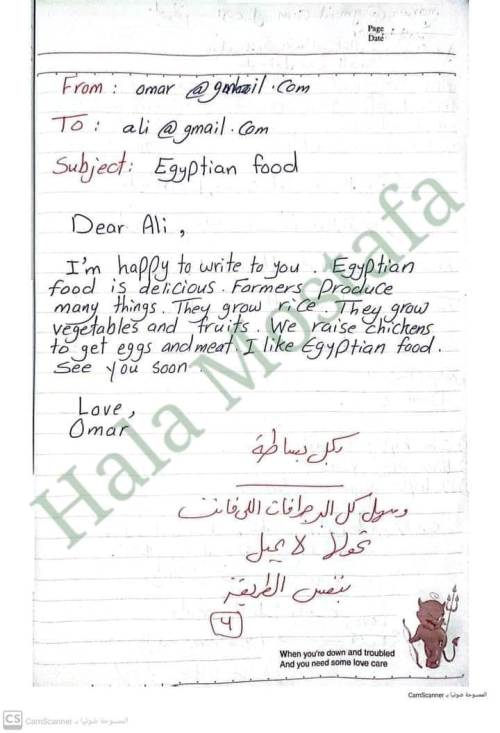 Page
Date
From : omar @gmail.com
To : ali @ gmail.com
Subject: Egyptian food
Dear Ali ,
I'm happy to write to you . Egyptian
food is delicious. Farmers Produce
many things. They grow rice. They grow
vegetables and fruits. We raise chickens
to get eggs and meat. I like Egyptian food.
See you soon.
Love,
Omar
بكل بساطة
وسهل كل البرجرافات اللى فاتت
تحولها لايميل
بنفس الطريقة
٩
When you're down and troubled
And you need some love care
Hala Mostafa
الممسوحة ضوئيا بـ CamScanner
CS CamScanner الممسوحة ضوئيا بـ